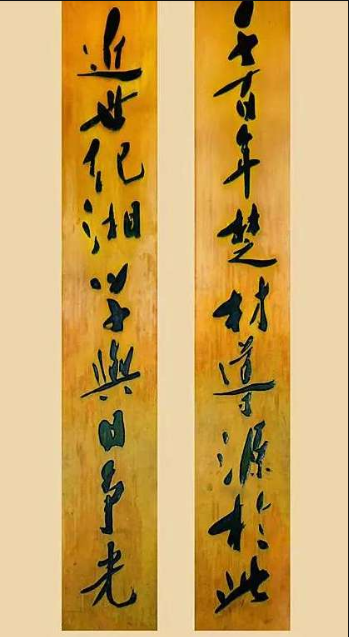 千百年楚材導源於此
近世紀湘学與日争光